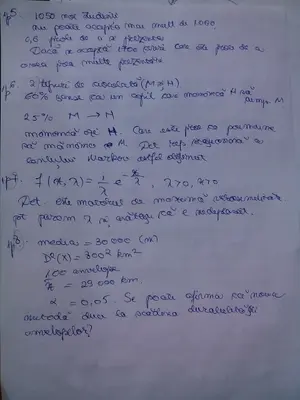 p5. 1050 noi studenti
nu poate accepta mai mult de 1000
0,6 prob. de a se prezenta
Dacă se acceptă 1700 care este prob. de a
avea prea multe
p6. 2 tipuri de ciocolată (M și H)
60% șanse ca un copil care mănâncă H să
M
25% M → H
mănâncă H. Care este prob. ca
să mănânce M. Det. rep. staționară a
lanțului Markov astfel obținut
p7. f(x, λ) = 1/λ e^{-x/λ}, λ>0, x>0
Det. est. de maximă verosimilitate
pt. param λ și arătați că e nedeplasat.
p8. media = 30 000 (m)
D²(X) = 300² km²
100 anvelope
x̄ = 29 000 km.
α = 0,05. Se poate afirma că noua
metodă duce la scăderea durabilității
anvelopelor?